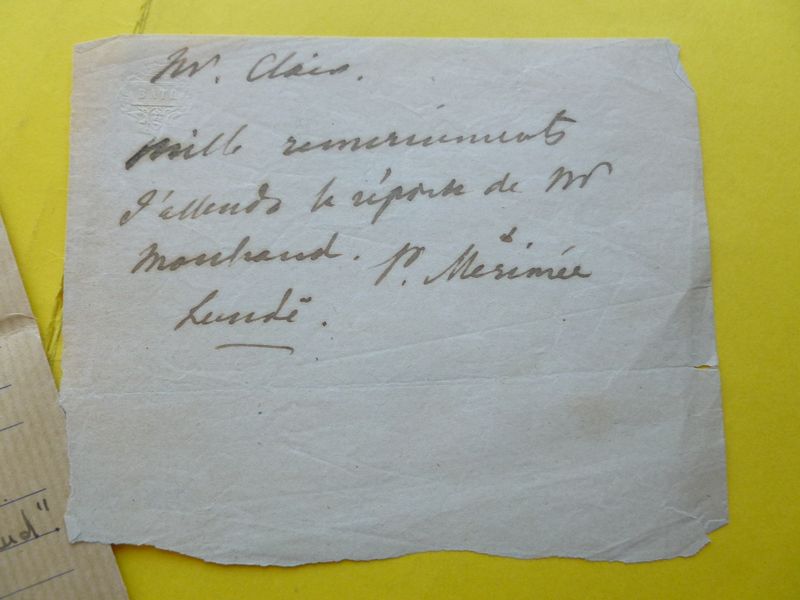 Mr. Clais.
BATH
mille remerciements
J'attends la réponse de Mr
Marchand. P. Mérimée
Lundi.
ud".